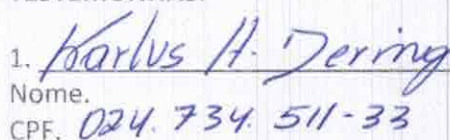 1. Karlus H. Dering
Nome.
CPF. 024.734.511-33